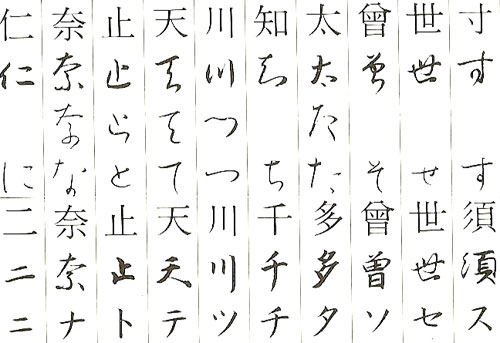 寸す す須須ス
世世 せ世世セ
曾曽 そ曾曽ソ
太太たた多多タ
知知 ち千千チ
川川つつ川川ツ
天天てて天天テ
止止とと止止ト
奈奈なな奈奈ナ
仁仁 に二ニニ